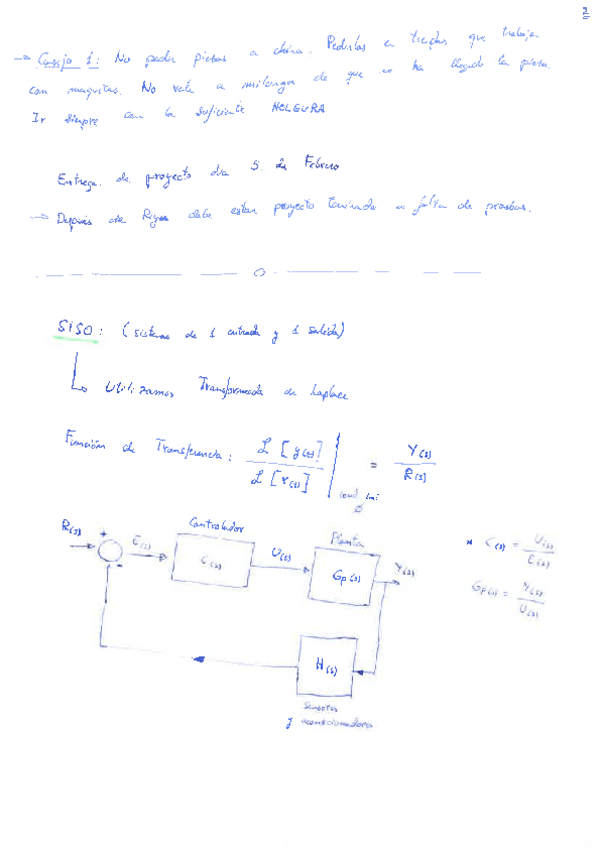 → Consejo 1: No pedir piezas a china. Pedirlas en tiendas que trabajen
con maquitas. No vale a milongas de que no ha llegado la pieza.
Ir siempre con la suficiente HOLGURA
Entrega de proyecto dia 5 de Febrero
→ Depues de Reyes debe estar proyecto terminado a falta de pruebas.
SISO: (sistemas de 1 entrada y 1 salida)
↳ Utilizamos Transformada de Laplace
Función de Transferencia: ℒ[y(t)] / ℒ[r(t)] | cond. ini ∅ = Y(s) / R(s)
Controlador
Planta
R(s) + E(s) C(s) U(s) Gp(s) Y(s)
-
* C(s) = U(s) / E(s)
Gp(s) = Y(s) / U(s)
H(s)
Sensores
y acondicionadores